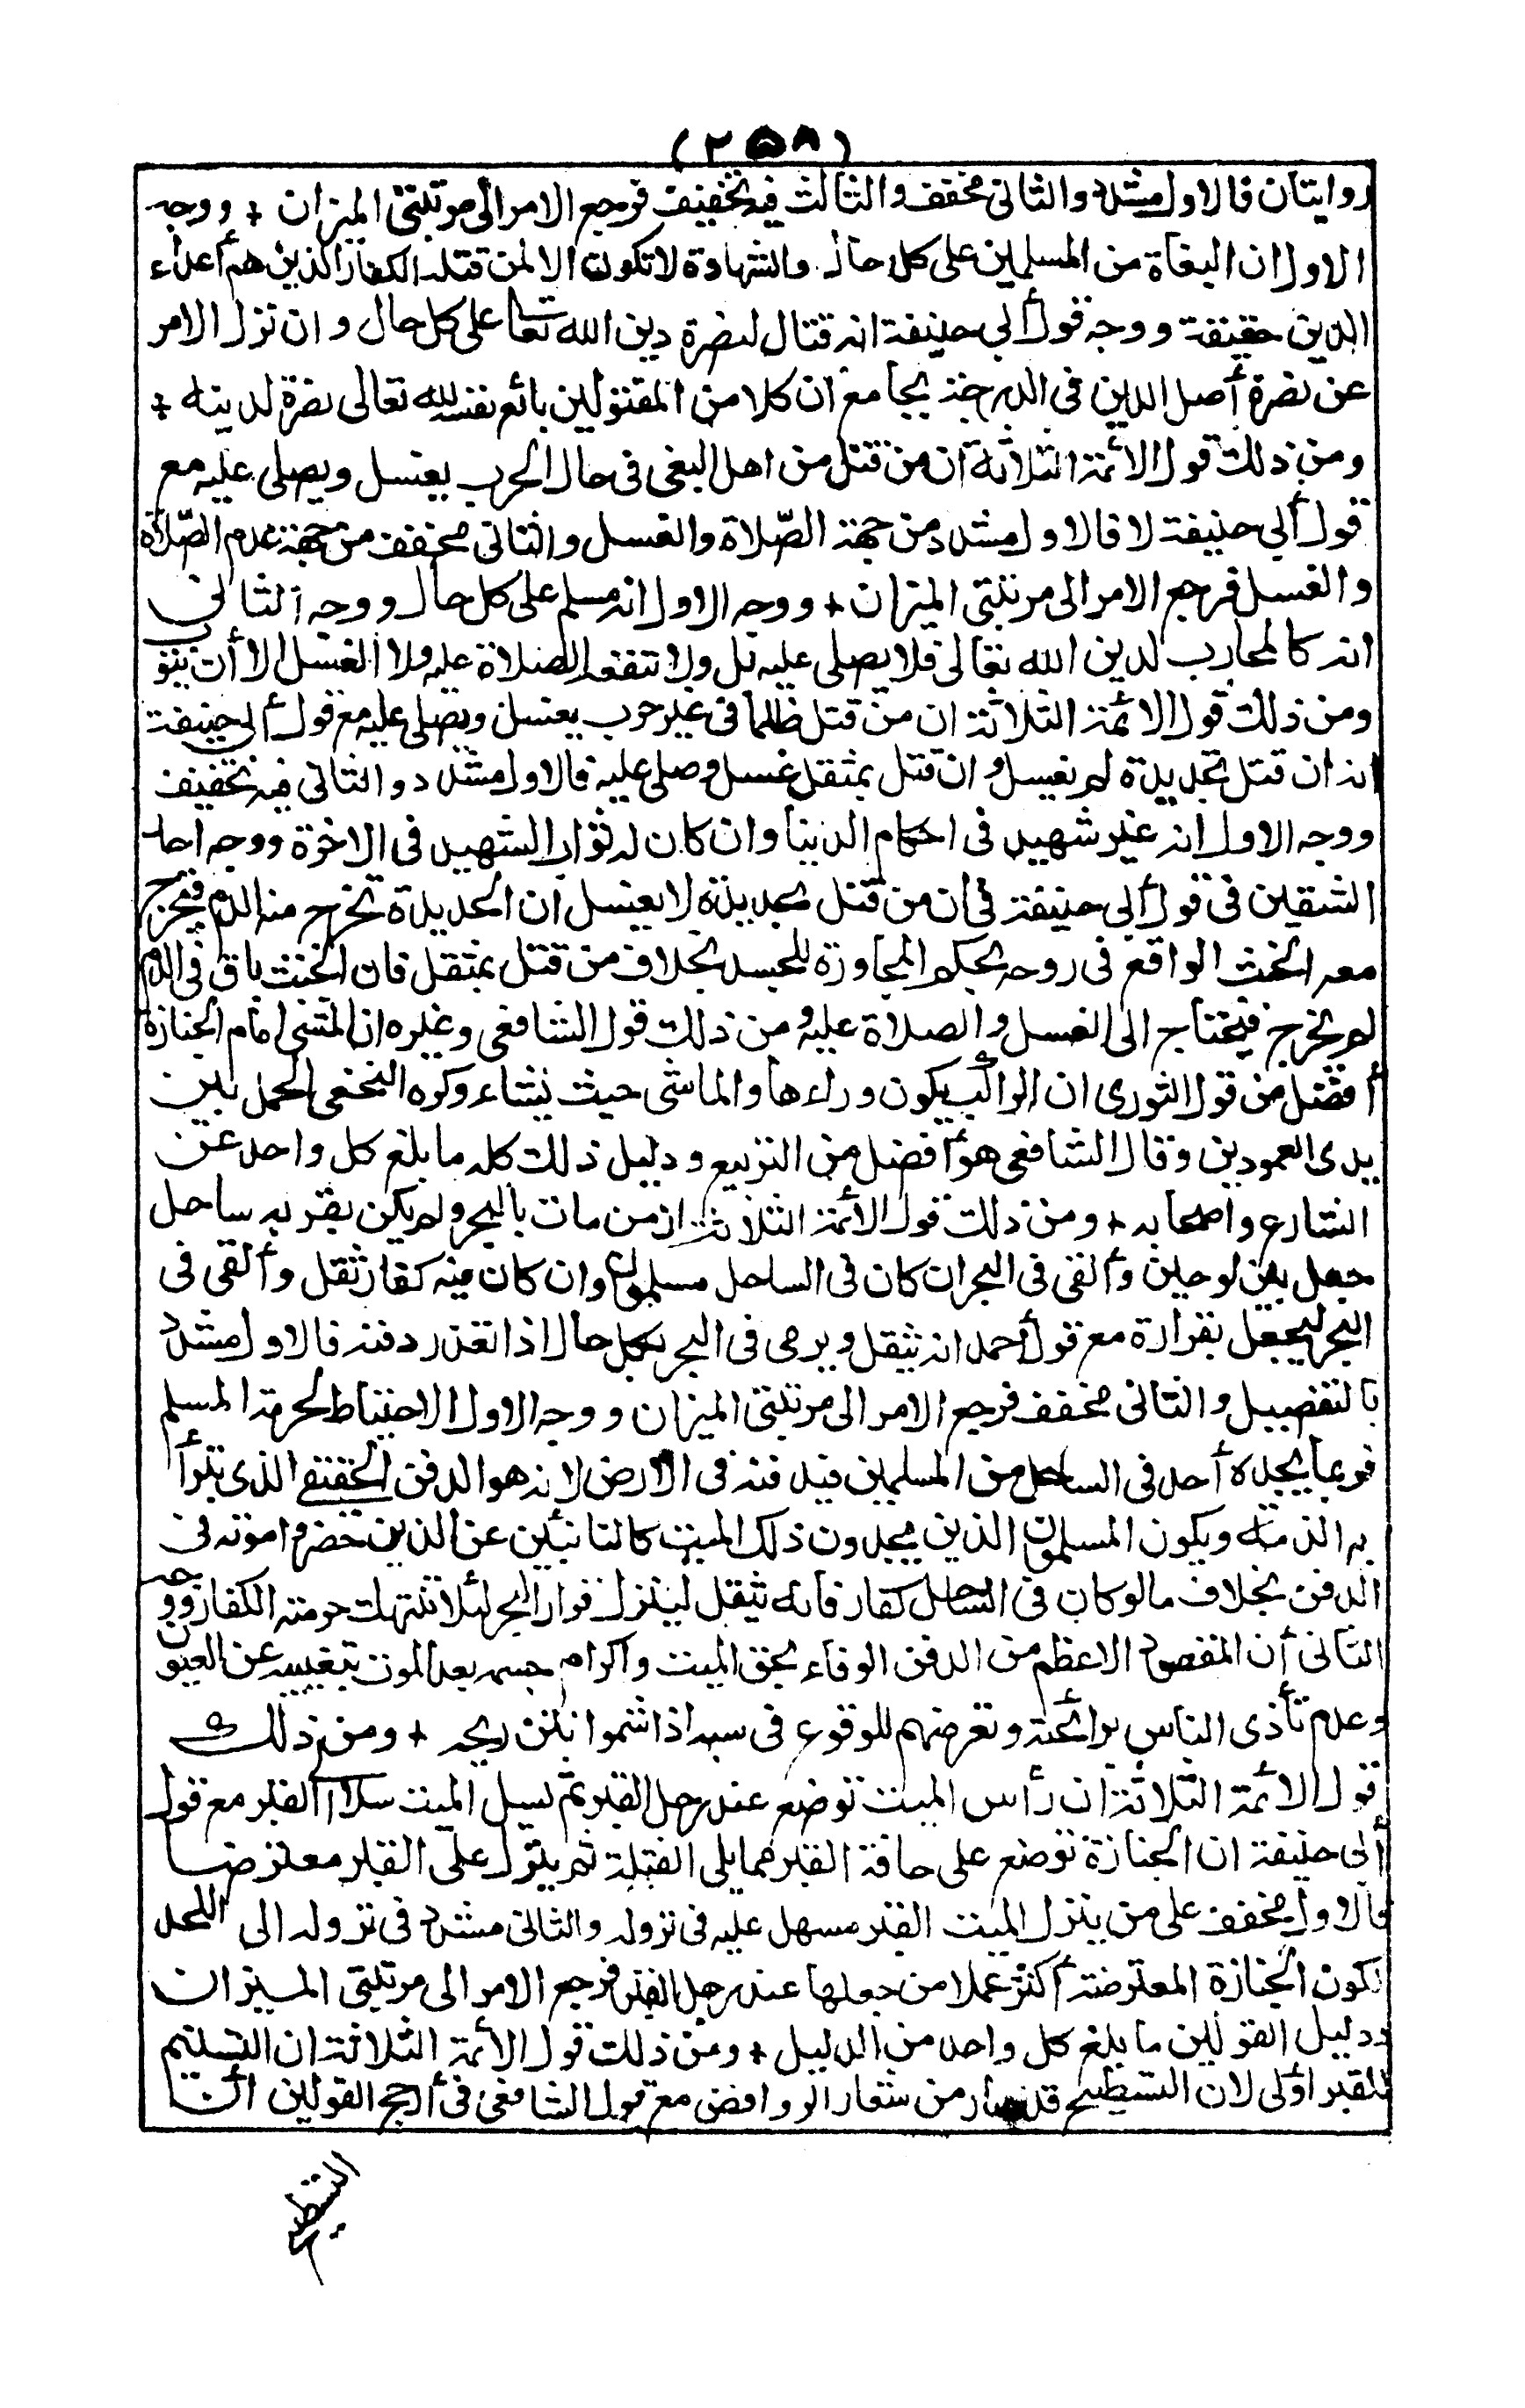 (٢٥٨)
روايتان فالاول مشدد والثانى مخفف والثالث فيه تخفيف فرجع الامر الى مرتبتى الميزان + ووجه
الاول ان البغاة من المسلمين على كل حال والشهادة لا تكون الا لمن قتله الكفار الذين هم أعداء
الدين حقيقة ووجه قول أبى حنيفة انه قتال لنصرة دين الله تعالى على كل حال وان نزل الامر
عن نصرة أصل الدين فى الدرجة بجامع ان كلا من المقتولين بائع نفسه لله تعالى نصرة لدينه +
ومن ذلك قول الائمة الثلاثة ان من قتل من اهل البغى فى حال الحرب يغسل ويصلى عليه مع
قول أبى حنيفة لا فالاول مشدد من جهة الصّلاة والغسل والثانى مخفف من جهة عدم الصّلاة
والغسل فرجع الامر الى مرتبتى الميزان + ووجه الاول انه مسلم على كل حال ووجه الثانى
انه كالمحارب لدين الله تعالى فلا يصلى عليه بل ولا تنفعه الصلاة عليه ولا الغسل الا أن يتوب
ومن ذلك قول الائمة الثلاثة ان من قتل ظلما فى غير حرب يغسل ويصلى عليه مع قول أبى حنيفة
انه ان قتل بحديدة لم يغسل وان قتل بمثقل غسل وصلى عليه فالاول مشدد والثانى فيه تخفيف
ووجه الاول انه غير شهيد فى احكام الدنيا وان كان له ثواب الشهيد فى الاخرة ووجه احد
الشقين فى قول أبى حنيفة فى أن من قتل بحديدة لا يغسل ان الحديدة تخرج منه الدم فيخرج
معه الخبث الواقع فى روحه بحكم المجاورة للجسد بخلاف من قتل بمثقل فان الخبث باق فى الدم
لم يخرج فيحتاج الى الغسل والصلاة عليه ومن ذلك قول الشافعى وغيره ان المشى امام الجنازة
أفضل من قول الثورى ان الراكب يكون وراءها والماشى حيث يشاء وكره النخعى الحمل بين
يدى العمودين وقال الشافعى هو أفضل من التربيع ودليل ذلك كله ما بلغ كل واحد عن
الشارع واصحابه + ومن ذلك قول الائمة الثلاثة ان من مات بالبحر ولم يكن بقربه ساحل
جعل بين لوحين وألقى فى البحر ان كان فى الساحل مسلمون وان كان فيه كفار ثقل وألقى فى
البحر ليجعل بقراره مع قول أحمد انه يثقل ويرمى فى البحر بكل حال اذا تعذر دفنه فالاول مشدد
بالتفصيل والثانى مخفف فرجع الامر الى مرتبتى الميزان ووجه الاول الاحتياط لحرمة المسلم
فربما يجده أحد فى الساحل من المسلمين فيدفنه فى الارض لانه هو الدفن الحقيقى الذى تبرأ
به الذمة ويكون المسلمون الذين يجدون ذلك الميت كالنائبين عن الذين حضروا موته فى
الدفن بخلاف ما لو كان فى الساحل كفار فانه يثقل لينزل قرار البحر لئلا تنتهك حرمته الكفار ووجه
الثانى أن المقصود الاعظم من الدفن الوفاء بحق الميت واكرام جسمه بعد الموت بتغييبه عن العيون
وعدم تأذى الناس برائحته وتعرضهم للوقوع فى سبه اذا شموا نتن ريحه + ومن ذلك
قول الائمة الثلاثة ان رأس الميت توضع عند رجل القبر ثم يسل الميت سلا الى القبر مع قول
أبى حنيفة ان الجنازة توضع على حافة القبر مما يلى القبلة ثم ينزل على القبر معترضا
فالاول مخفف على من ينزل الميت القبر مسهل عليه فى نزوله والثانى مشدد فى نزوله الى اللحد
لكون الجنازة المعترضة أكثر عملا من جعلها عند رجل القبر فرجع الامر الى مرتبتى الميزان
ودليل القولين ما بلغ كل واحد من الدليل + ومن ذلك قول الائمة الثلاثة ان التسنيم
للقبر اولى لان التسطيح قد صار من شعار الروافض مع قول الشافعى فى أرجح القولين ان
التسطيح